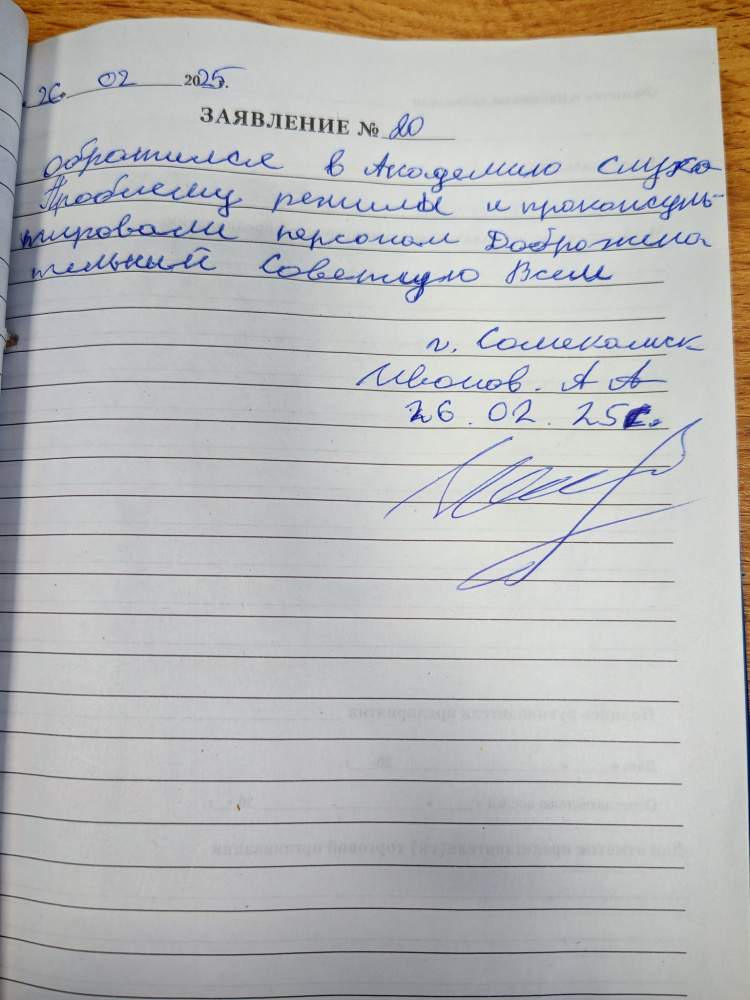 26. 02 2025г.
ЗАЯВЛЕНИЕ № 20
обратился в Академию слуха
Проблему решили и проконсуль-
тировали персонал Доброжела
тельный Советую Всем
г. Соликамск
Иванов. А А
26. 02. 25г.